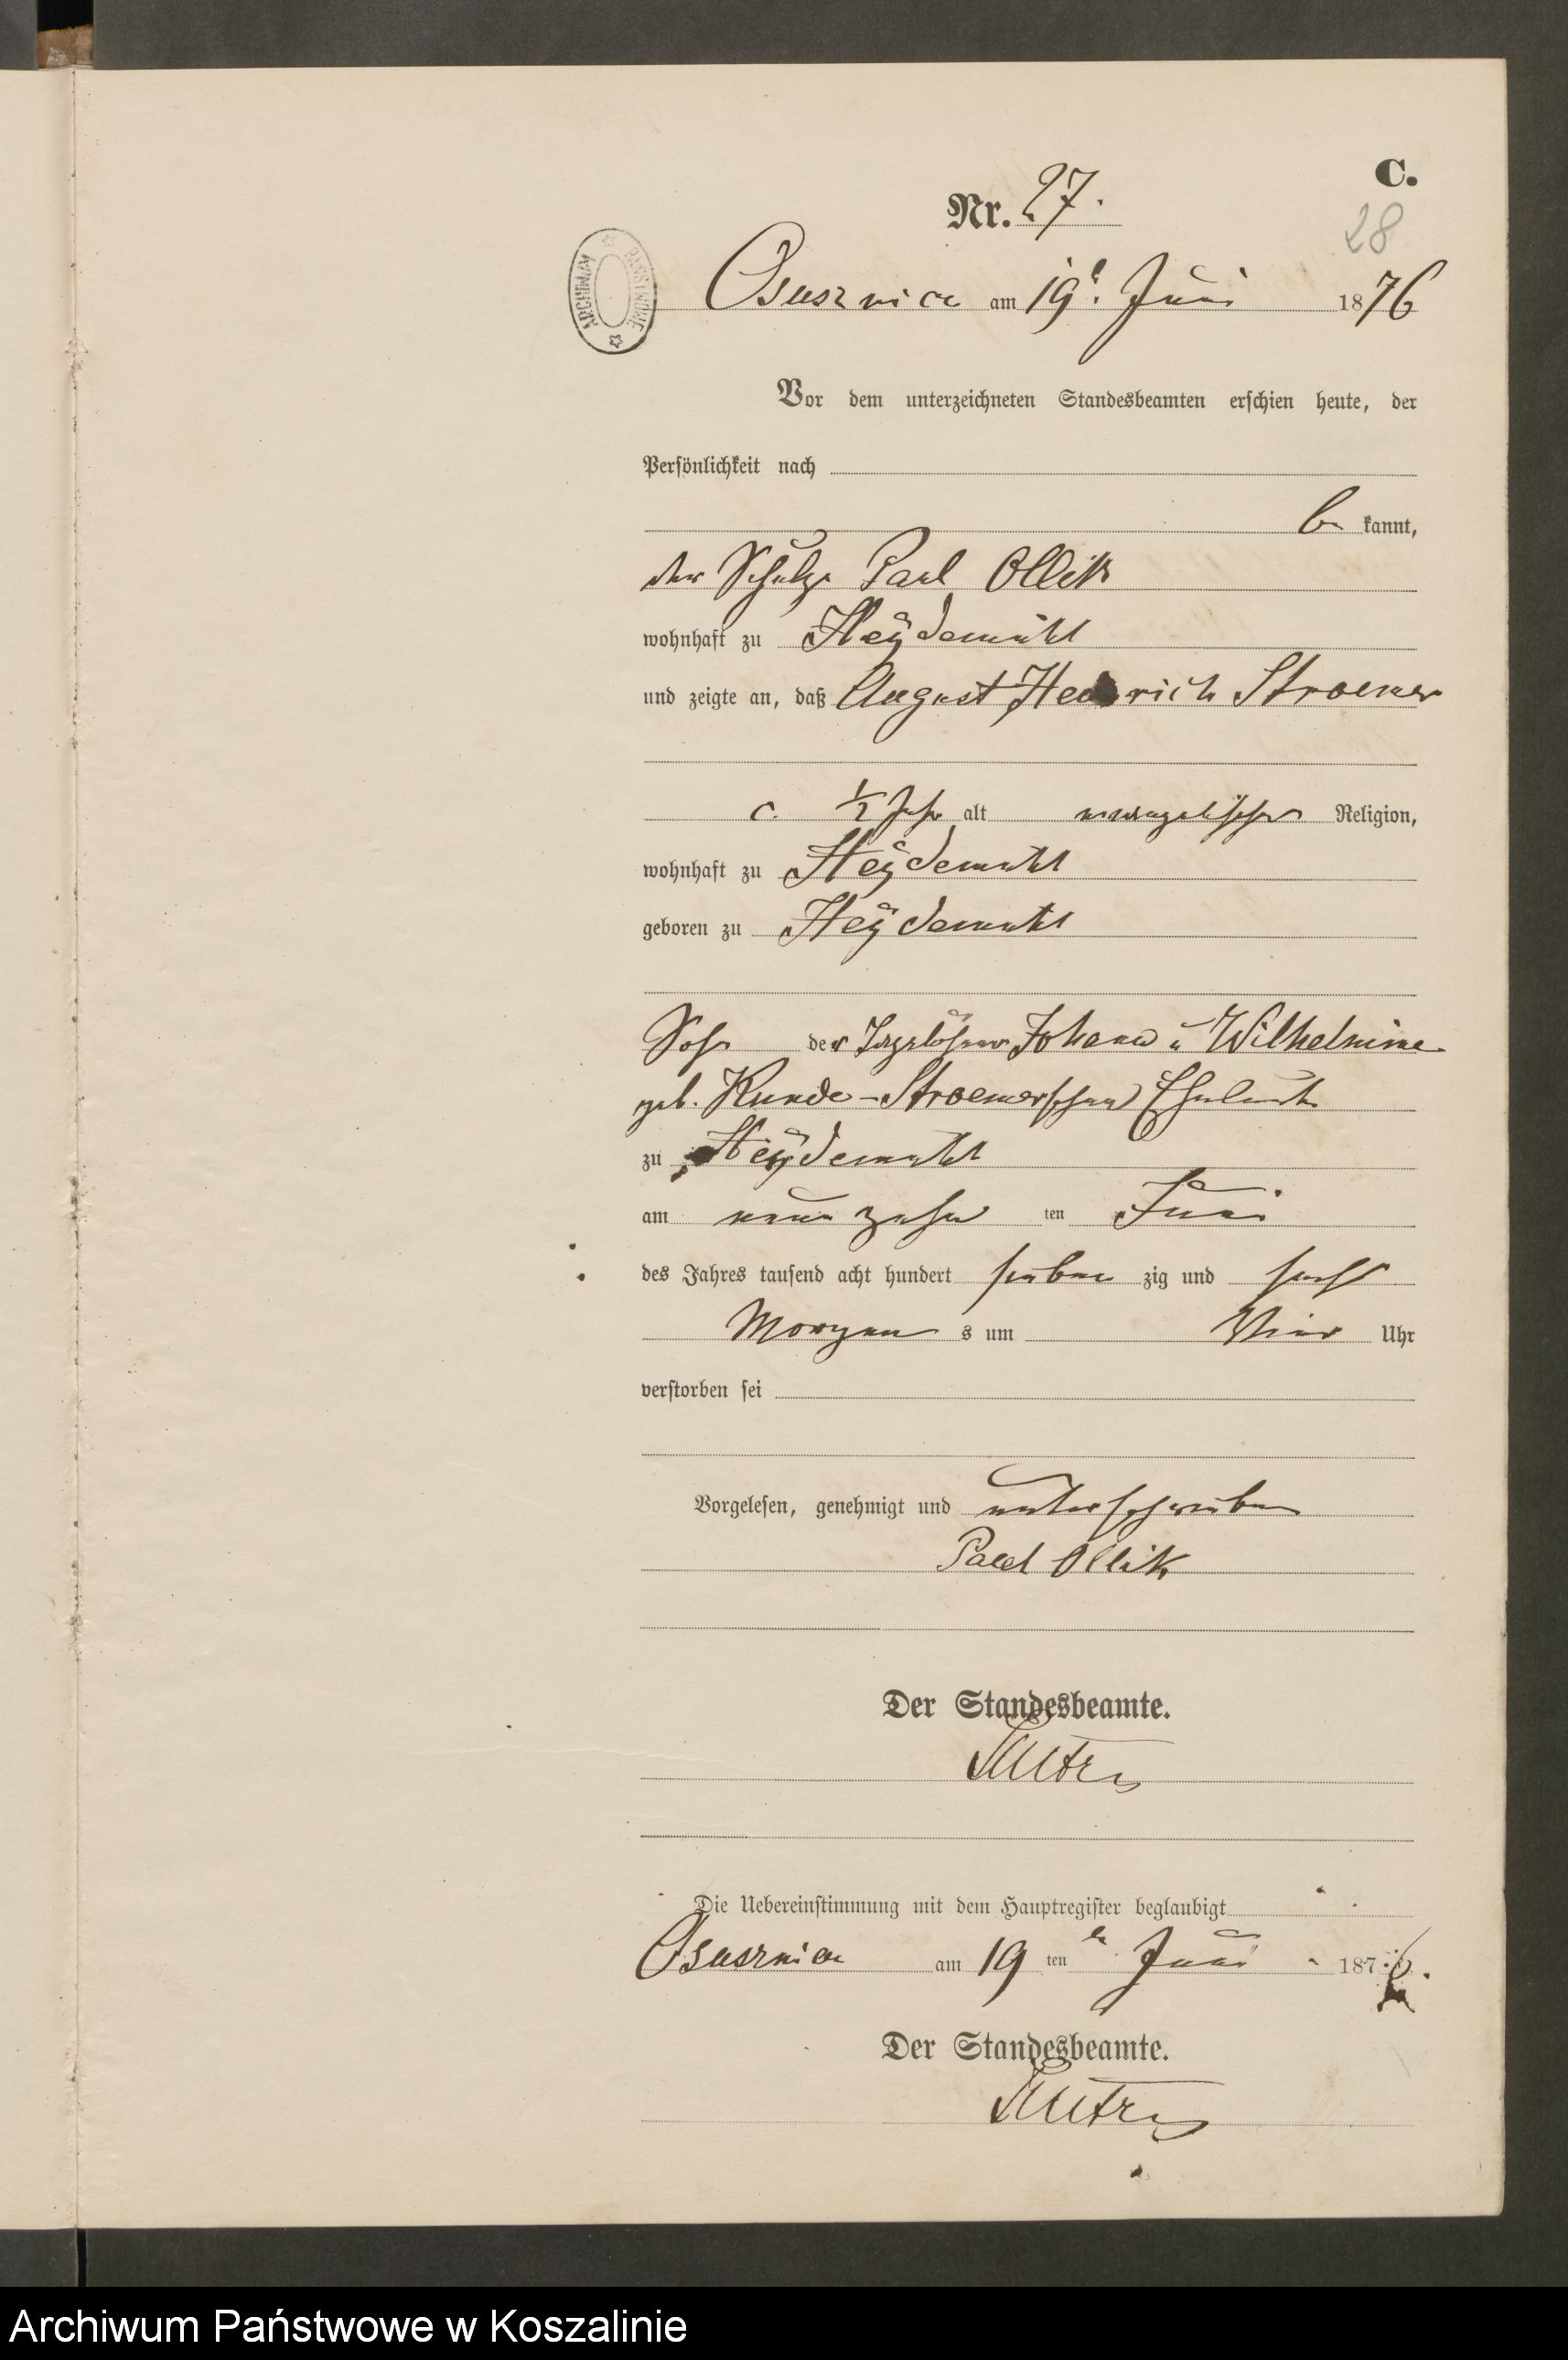 C.
Nr. 27.
28
ARCHIWUM PAŃSTWOWE
Osusznica am 19t. Juni 1876
Vor dem unterzeichneten Standesbeamten erschien heute, der
Persönlichkeit nach
be kannt,
der Schulze Paul Ollik
wohnhaft zu Heydemühl
und zeigte an, daß August Heinrich Stroemer
c. 1/2 Jahr alt evangelischer Religion,
wohnhaft zu Heydemühl
geboren zu Heydemühl
Sohn der Tagelöhner Johann u Wilhelmine
geb. Kunde-Stroemerschen Eheleute
zu Heydemühl
am neunzehn ten Juni
des Jahres tausend acht hundert sieben zig und sechs
Morgen s um Vier Uhr
verstorben sei
Vorgelesen, genehmigt und unterschrieben
Paul Ollik
Der Standesbeamte.
Die Uebereinstimmung mit dem Hauptregister beglaubigt
Osusznica am 19 ten Juni 1876.
Der Standesbeamte.
Archiwum Państwowe w Koszalinie